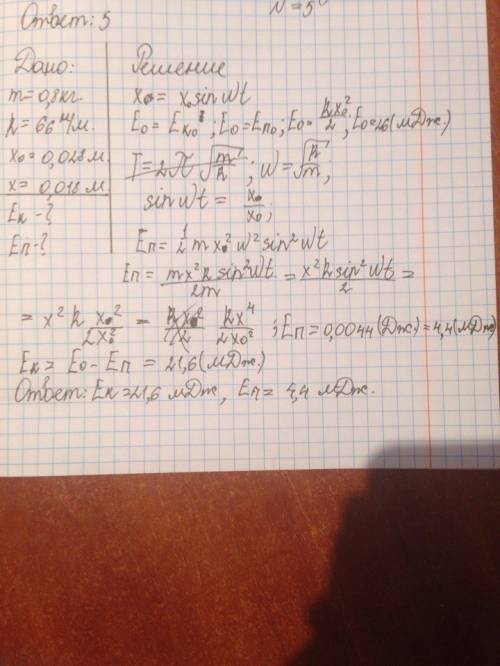 Ответ: 5
N = 5
Дано:
m = 0,8 кг.
k = 66 Н/м.
x₀ = 0,028 м.
x = 0,018 м
Eк - ?
Eп - ?
Решение
x = x₀ sin Wt
E₀ = Eк₀; E₀ = Eп₀; E₀ = kx₀²/2; E₀ = 26 (мДж.)
T = 2π √m/k; W = √k/m;
sin Wt = x/x₀;
Eп = 1/2 m x₀² w² sin² Wt
Eп = mx² k sin² Wt/2m = x² k sin² Wt/2 =
= x² k x₀²/2x₀² = kx₀²/2 kx⁴/2x₀²; Eп = 0,0044 (Дж.) = 4,4 (мДж)
Eк = E₀ - Eп = 21,6 (мДж.)
Ответ: Eк = 21,6 мДж, Eп = 4,4 мДж.